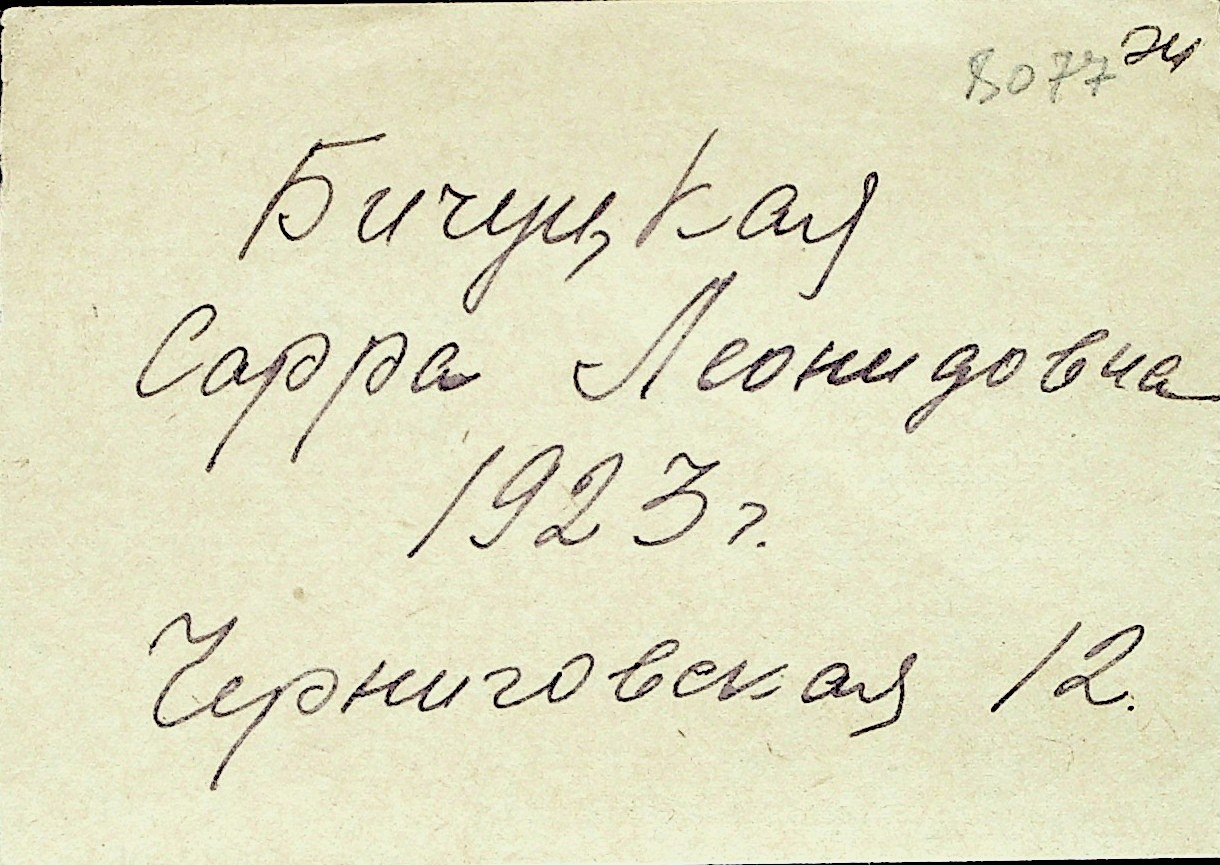 8077 74
Бичуцкая
Сарра Леонидовна
1923 г.
Черниговская 12.